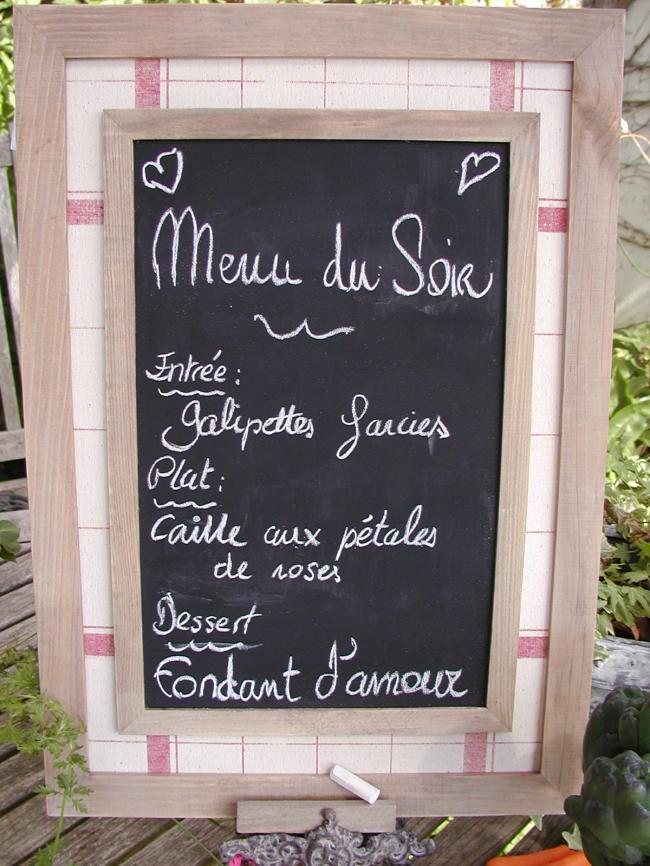 Menu du Soir
Entrée :
galipettes farcies
Plat :
Caille aux pétales
de roses
Dessert
Fondant d'amour